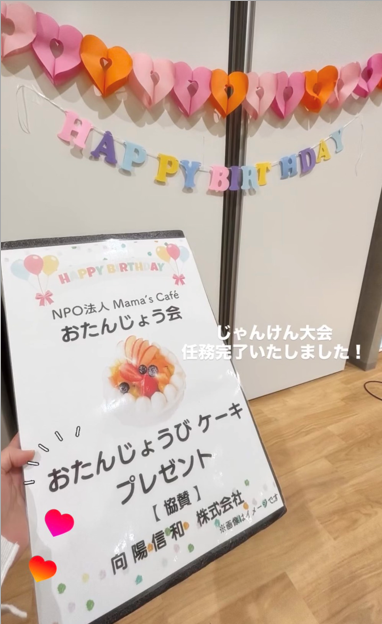 HAPPY BIRTHDAY
HAPPY BIRTHDAY
NPO法人 Mama's Café
おたんじょう会
じゃんけん大会
任務完了いたしました！
おたんじょうび ケーキ
プレゼント
[ 協賛 ]
向陽信和 株式会社
※画像はイメージです